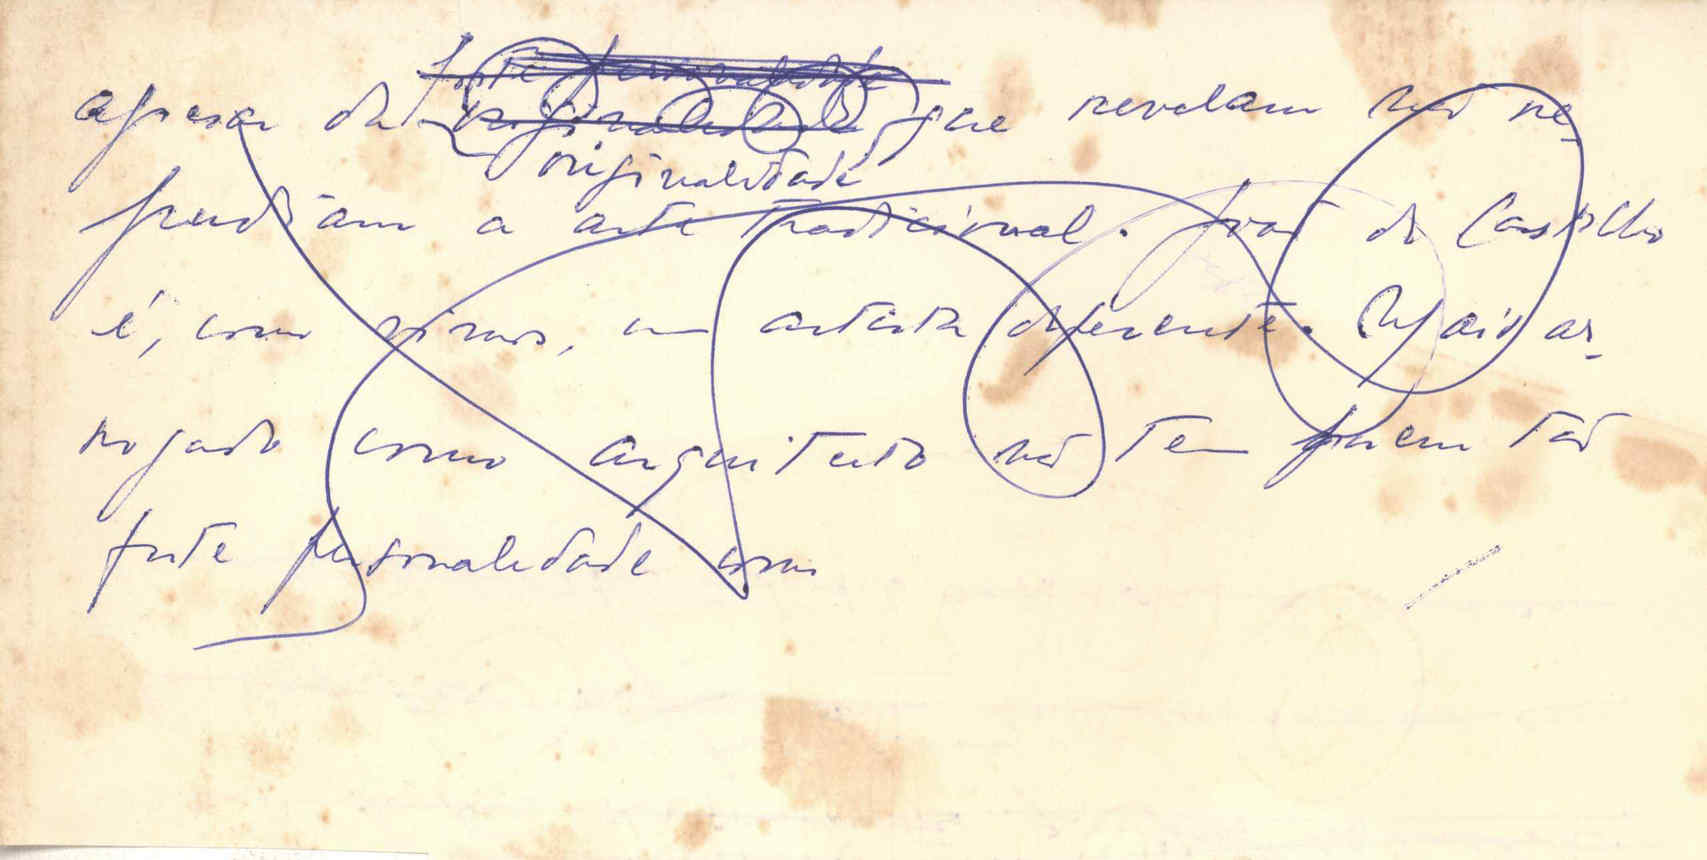 forte personalidade
apesar da originalidade que revelam não re-
originalidade
pudiam a arte tradicional. João de Castilho
é, como vimos, um artista diferente. Mais ar-
rojado como arquitecto não tem porem tão
forte personalidade como